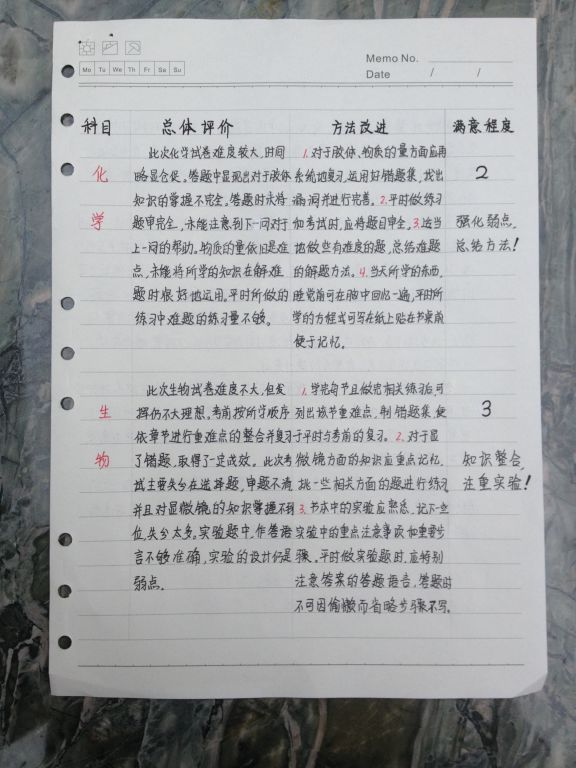 Memo No.
Mo Tu We Th Fr Sa Su
Date / /
科目 总体评价 方法改进 满意程度
化学
此次化学试卷难度较大,时间
略显仓促。答题中显现出对于胶体
知识的掌握不完全。答题时未将
题审完全,未能注意到下一问对于
上一问的帮助。物质的量依旧是难
点,未能将所学的知识在解难
题时很好地运用。平时所做的
练习中难题的练习量不够。
1.对于胶体、物质的量方面应用
系统地复习,运用好错题集,找出
漏洞并进行完善。2.平时做练习
和考试时,应将题目审全。3.适当
地做些有难度的题,总结难题
的解题方法。4.当天所学的东西,
睡觉前可在脑中回忆一遍,平时所
学的方程式可写在纸上贴在书桌前
便于记忆。
2
强化弱点,
总结方法!
生物
此次生物试卷难度不大,但发
挥仍不大理想。考前按所学顺序
依章节进行重难点的整合并复习
了错题,取得了一定成效。此次考
试主要失分在选择题,审题不清
并且对显微镜的知识掌握不到
位,失分太多。实验题中,作答语
言不够准确,实验的设计仍是
弱点。
1.学完每节且做完相关练习后,可
列出该节重难点,制错题集,便
于平时与考前的复习。2.对于显
微镜方面的知识应重点记忆,
挑一些相关方面的题进行练习
3.书本中的实验应熟悉,记下一些
实验中的重点注意事项和重要步
骤。平时做实验题时,应特别
注意答案的答题语言,答题时
不可因偷懒而省略步骤不写。
3
知识整合,
注重实验!